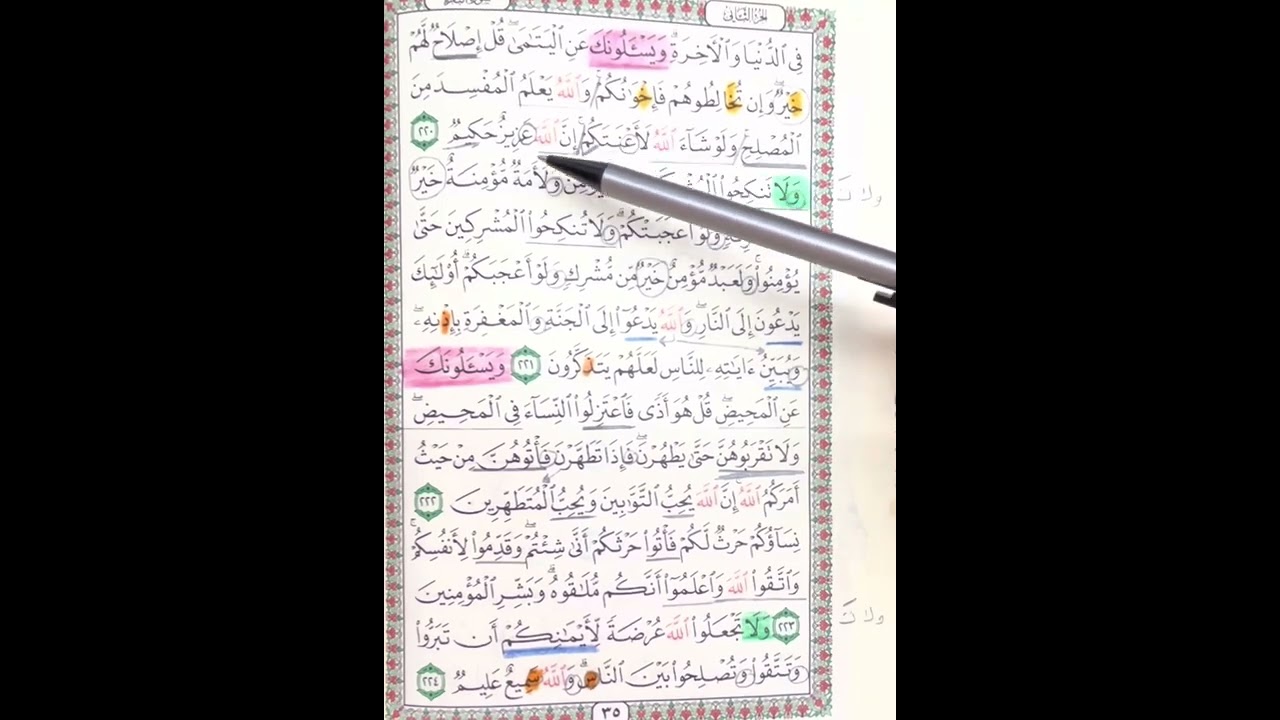 الجزء الثاني
في ٱلدُّنْيَا وَٱلْءَاخِرَةِۗ وَيَسْـَٔلُونَكَ عَنِ ٱلْيَتَٰمَىٰۖ قُلْ إِصْلَاحٌ لَّهُمْ
خَيْرٌۖ وَإِن تُخَالِطُوهُمْ فَإِخْوَٰنُكُمْۚ وَٱللَّهُ يَعْلَمُ ٱلْمُفْسِدَ مِنَ
ٱلْمُصْلِحِۚ وَلَوْ شَآءَ ٱللَّهُ لَأَعْنَتَكُمْۚ إِنَّ ٱللَّهَ عَزِيزٌ حَكِيمٌ ٢٢٠
وَلَا تَنكِحُوا۟ وَلَأَمَةٌ مُّؤْمِنَةٌ خَيْرٌ ولا تَ
وَلَوْ أَعْجَبَتْكُمْۗ وَلَا تُنكِحُوا۟ ٱلْمُشْرِكِينَ حَتَّىٰ
يُؤْمِنُوا۟ۚ وَلَعَبْدٌ مُّؤْمِنٌ خَيْرٌ مِّن مُّشْرِكٍ وَلَوْ أَعْجَبَكُمْۗ أُو۟لَٰٓئِكَ
يَدْعُونَ إِلَى ٱلنَّارِۖ وَٱللَّهُ يَدْعُوٓا۟ إِلَى ٱلْجَنَّةِ وَٱلْمَغْفِرَةِ بِإِذْنِهِۦۖ
وَيُبَيِّنُ ءَايَٰتِهِۦ لِلنَّاسِ لَعَلَّهُمْ يَتَذَكَّرُونَ ٢٢١ وَيَسْـَٔلُونَكَ
عَنِ ٱلْمَحِيضِۖ قُلْ هُوَ أَذًى فَٱعْتَزِلُوا۟ ٱلنِّسَآءَ فِي ٱلْمَحِيضِۖ
وَلَا تَقْرَبُوهُنَّ حَتَّىٰ يَطْهُرْنَۖ فَإِذَا تَطَهَّرْنَ فَأْتُوهُنَّ مِنْ حَيْثُ
أَمَرَكُمُ ٱللَّهُۚ إِنَّ ٱللَّهَ يُحِبُّ ٱلتَّوَّٰبِينَ وَيُحِبُّ ٱلْمُتَطَهِّرِينَ ٢٢٢
نِسَآؤُكُمْ حَرْثٌ لَّكُمْ فَأْتُوا۟ حَرْثَكُمْ أَنَّىٰ شِئْتُمْۖ وَقَدِّمُوا۟ لِأَنفُسِكُمْۚ
وَٱتَّقُوا۟ ٱللَّهَ وَٱعْلَمُوٓا۟ أَنَّكُم مُّلَٰقُوهُۗ وَبَشِّرِ ٱلْمُؤْمِنِينَ
٢٢٣ وَلَا تَجْعَلُوا۟ ٱللَّهَ عُرْضَةً لِّأَيْمَٰنِكُمْ أَن تَبَرُّوا۟ ولا تَ
وَتَتَّقُوا۟ وَتُصْلِحُوا۟ بَيْنَ ٱلنَّاسِۗ وَٱللَّهُ سَمِيعٌ عَلِيمٌ ٢٢٤
٣٥